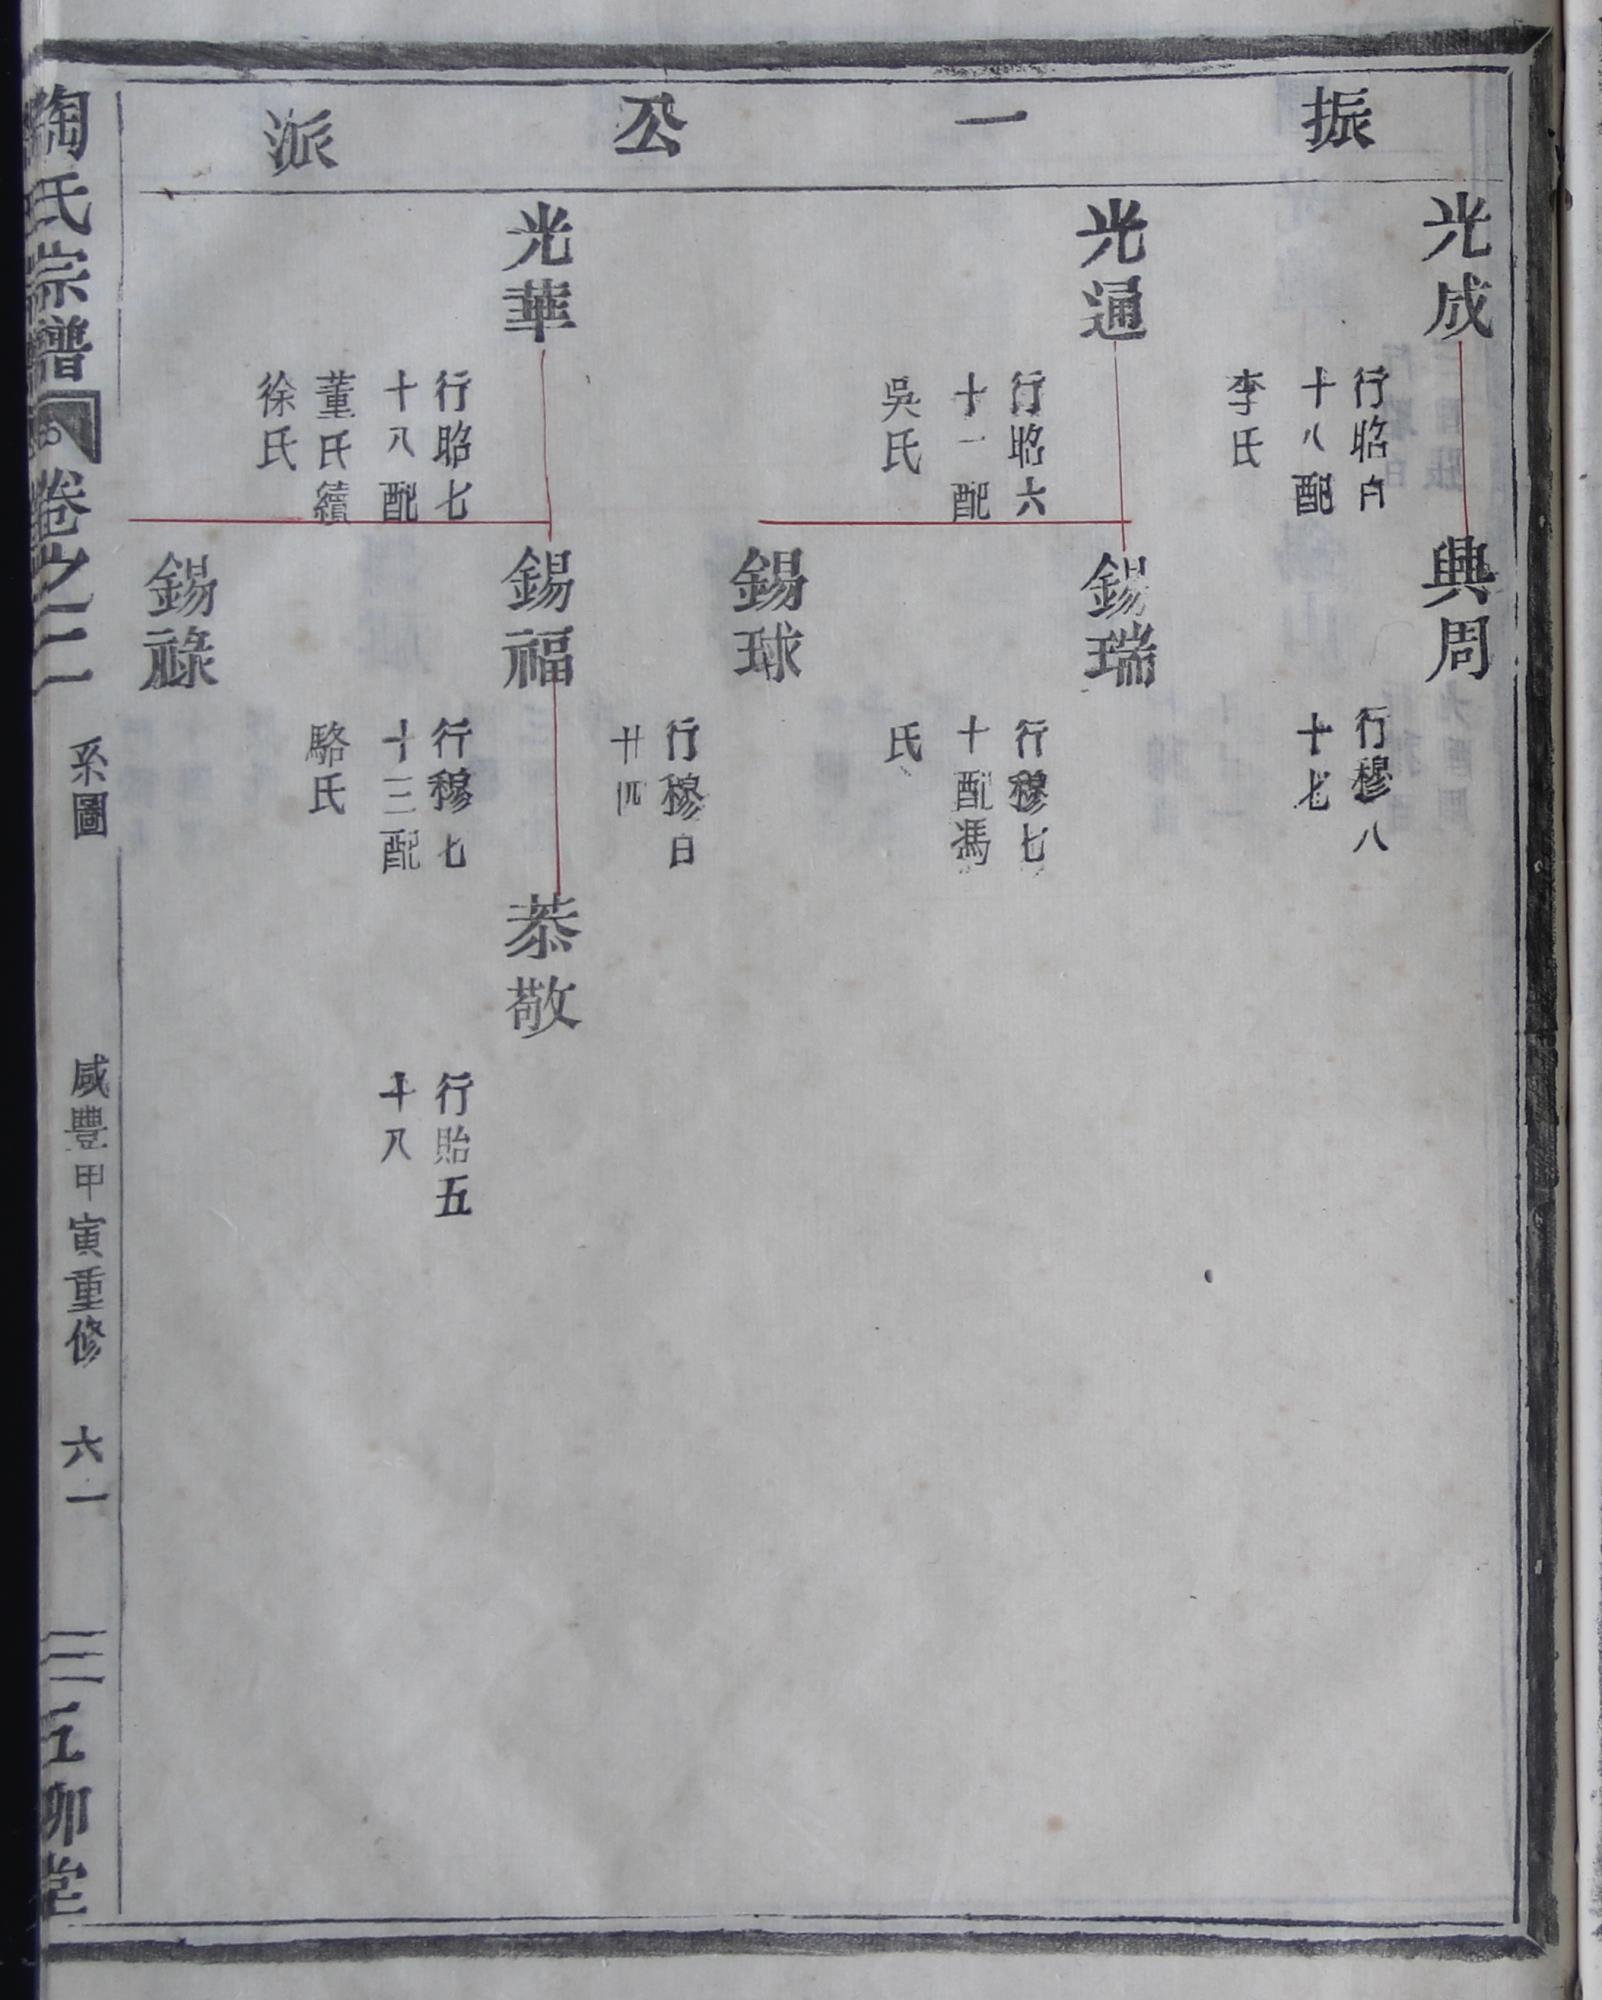 振一公派
光成
行昭白
十八配
李氏
興周
行穆八
十七
光通
行昭六
十一配
吳氏
錫瑞
行穆七
十配馮
氏
錫球
行穆白
廿四
光華
行昭七
十八配
董氏續
徐氏
錫福
行穆七
十三配
駱氏
恭敬
行貽五
十八
錫祿
陶氏宗譜
卷之二
系圖
咸豐甲寅重修
六一
五柳堂